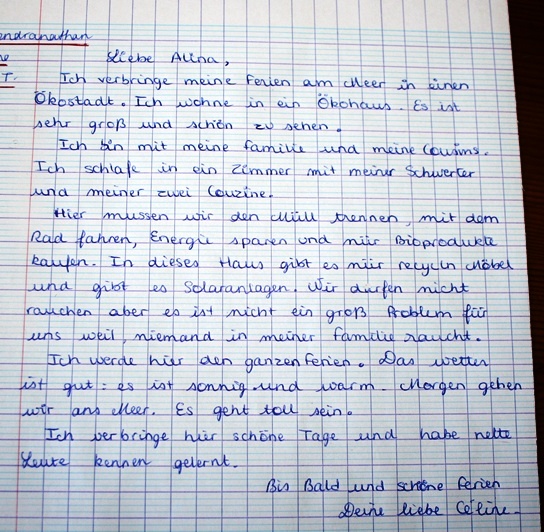 endranathan
Liebe Alina,
T.
Ich verbringe meine Ferien am Meer in einen
Ökostadt. Ich wohne in ein Ökohaus. Es ist
sehr groß und schön zu sehen.
Ich bin mit meine familie und meine Cousins.
Ich schlafe in ein Zimmer mit meiner Schwerter
und meiner zwei Couzine.
Hier mussen wir den Müll trennen, mit dem
Rad fahren, Energie sparen und nür Bioprodukte
kaufen. In dieses Haus gibt es nür recycln Möbel
und gibt es Solaranlagen. Wir durfen nicht
rauchen aber es ist nicht ein groß Problem für
uns weil, niemand in meiner familie raucht.
Ich werde hier den ganzenferien. Das wetter
ist gut: es ist sonnig und warm. Morgen gehen
wir ans Meer. Es geht toll sein.
Ich verbringe hier schöne Tage und habe nette
Leute kennen gelernt.
Bis Bald und schöne ferien
Deine liebe Céline.